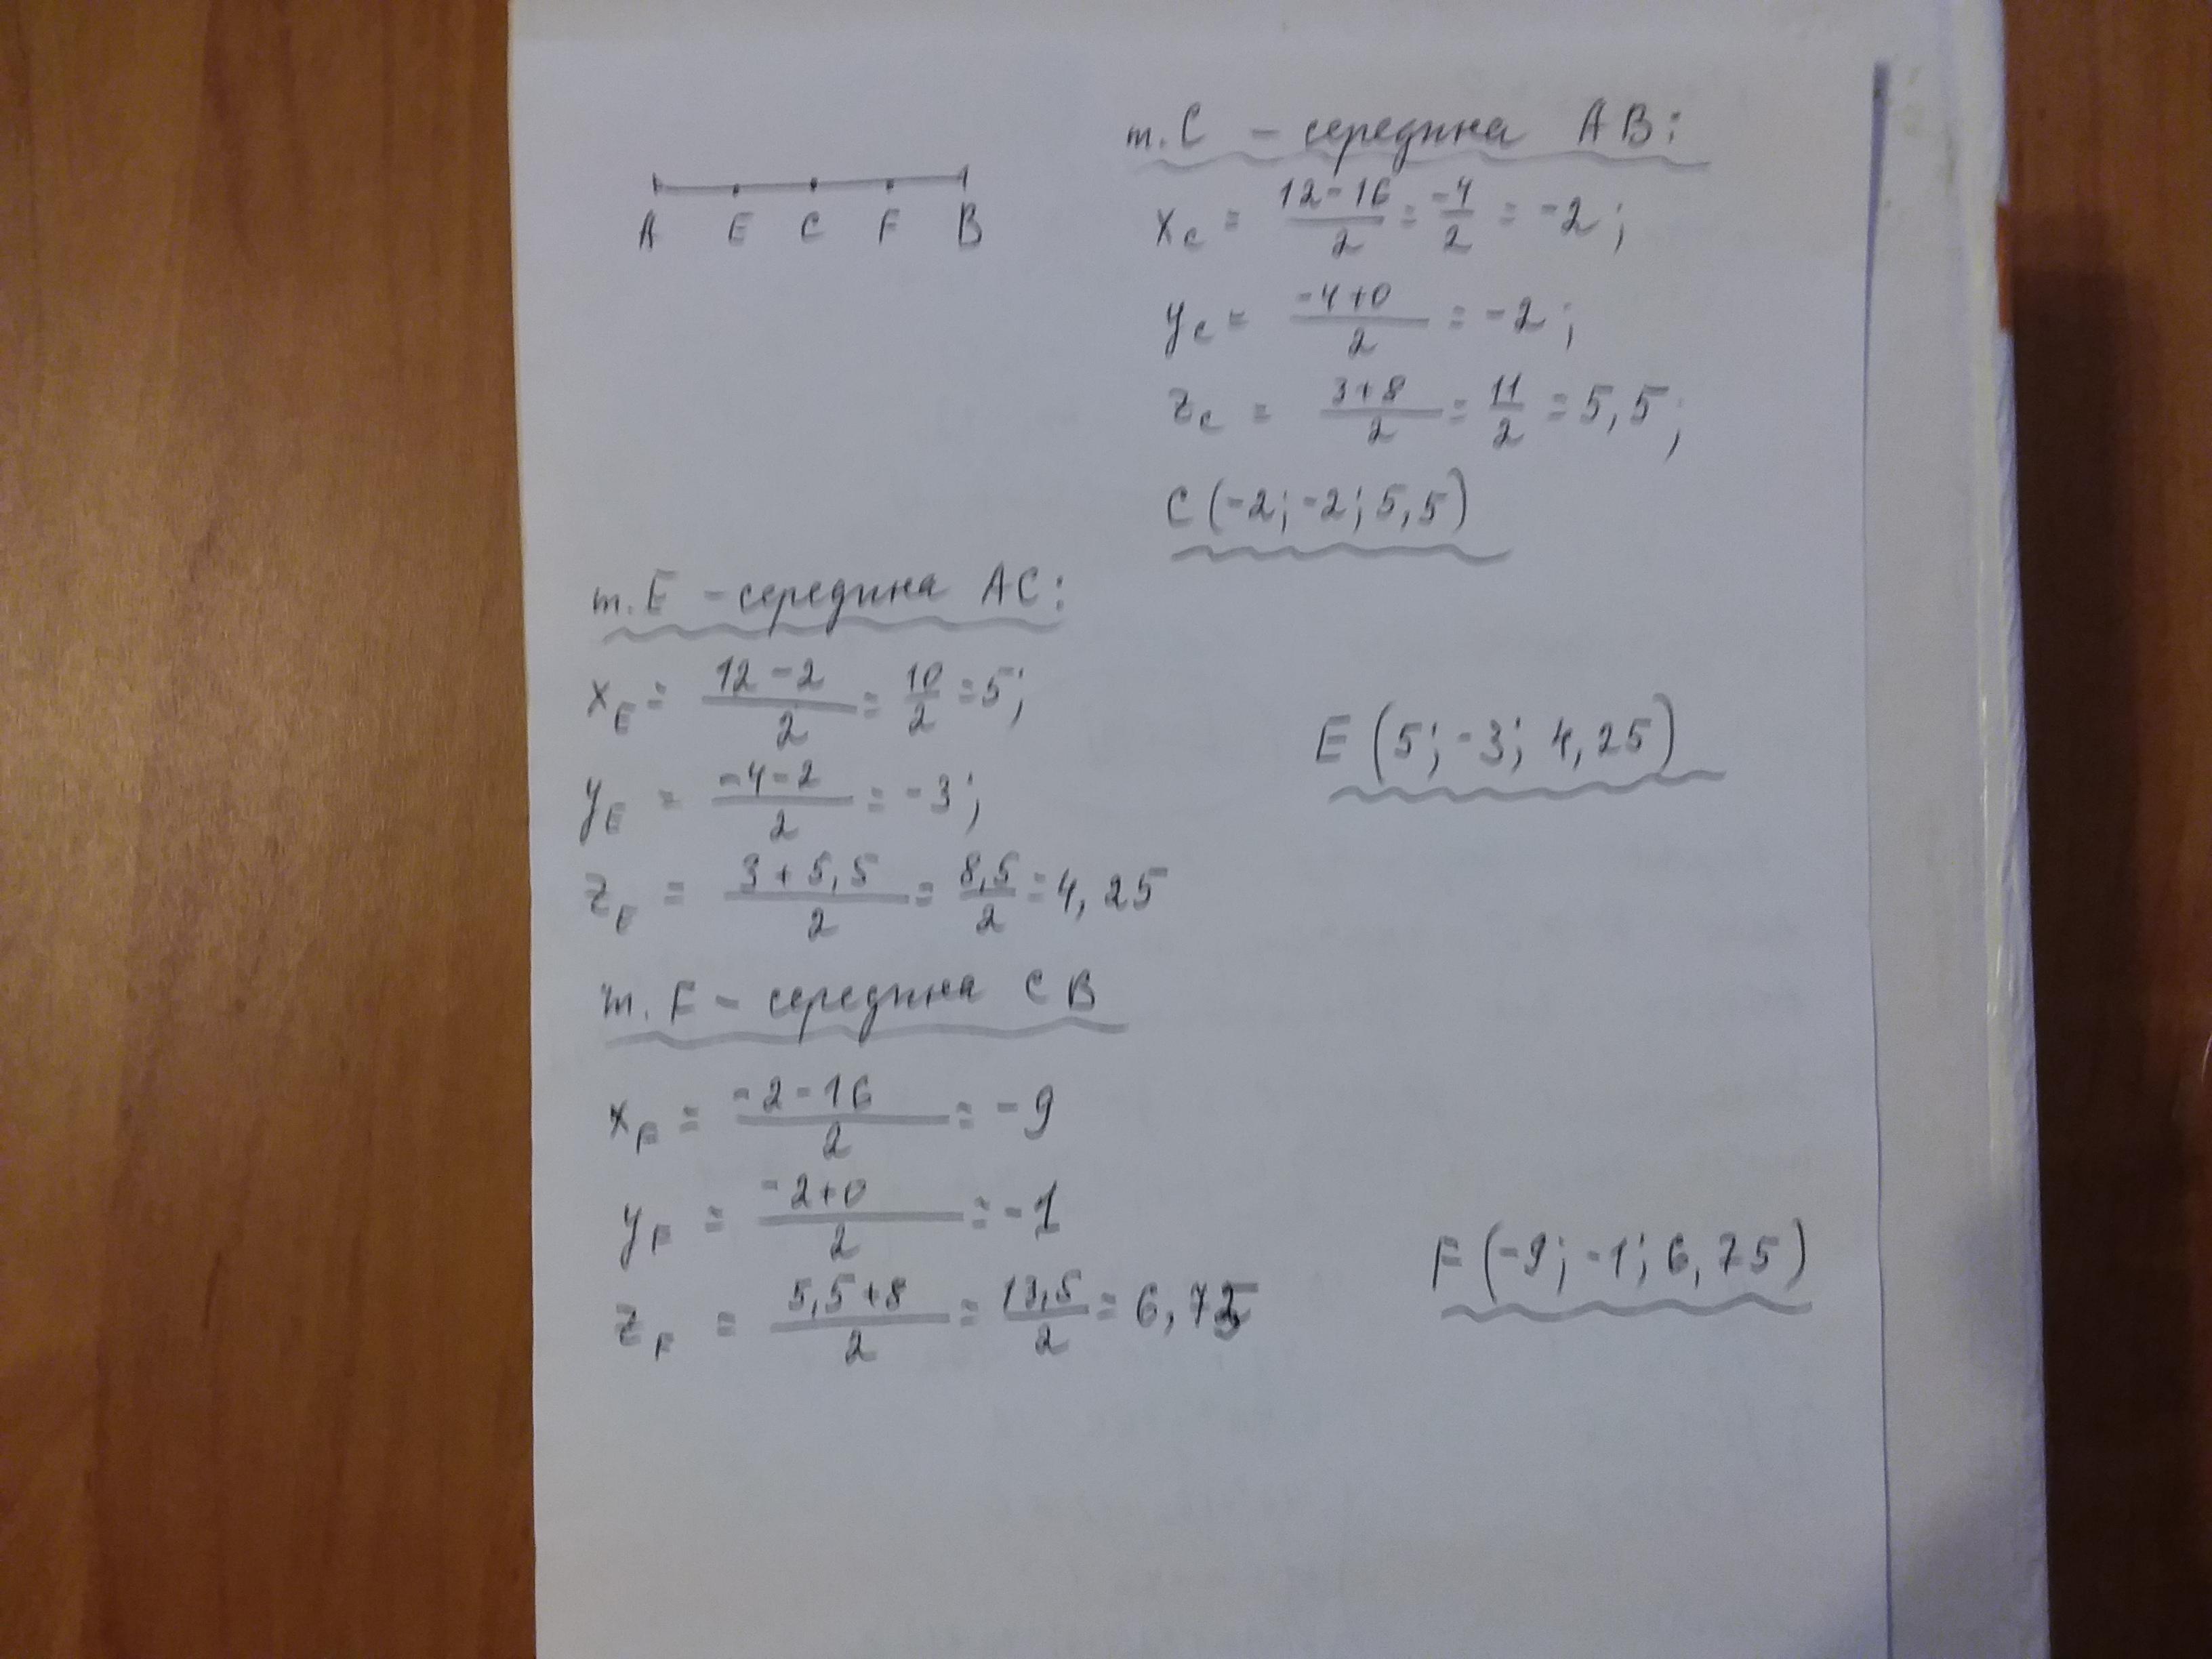 A E C F B
т. C – середина AB:
x_C = (12-16)/2 = -4/2 = -2;
y_C = (-4+0)/2 = -2;
z_C = (3+8)/2 = 11/2 = 5,5;
C (-2; -2; 5,5)
т. E – середина AC:
x_E = (12-2)/2 = 10/2 = 5;
y_E = (-4-2)/2 = -3;
z_E = (3+5,5)/2 = 8,5/2 = 4,25
E (5; -3; 4,25)
т. F – середина CB
x_F = (-2-16)/2 = -9
y_F = (-2+0)/2 = -1
z_F = (5,5+8)/2 = 13,5/2 = 6,75
F (-9; -1; 6,75)